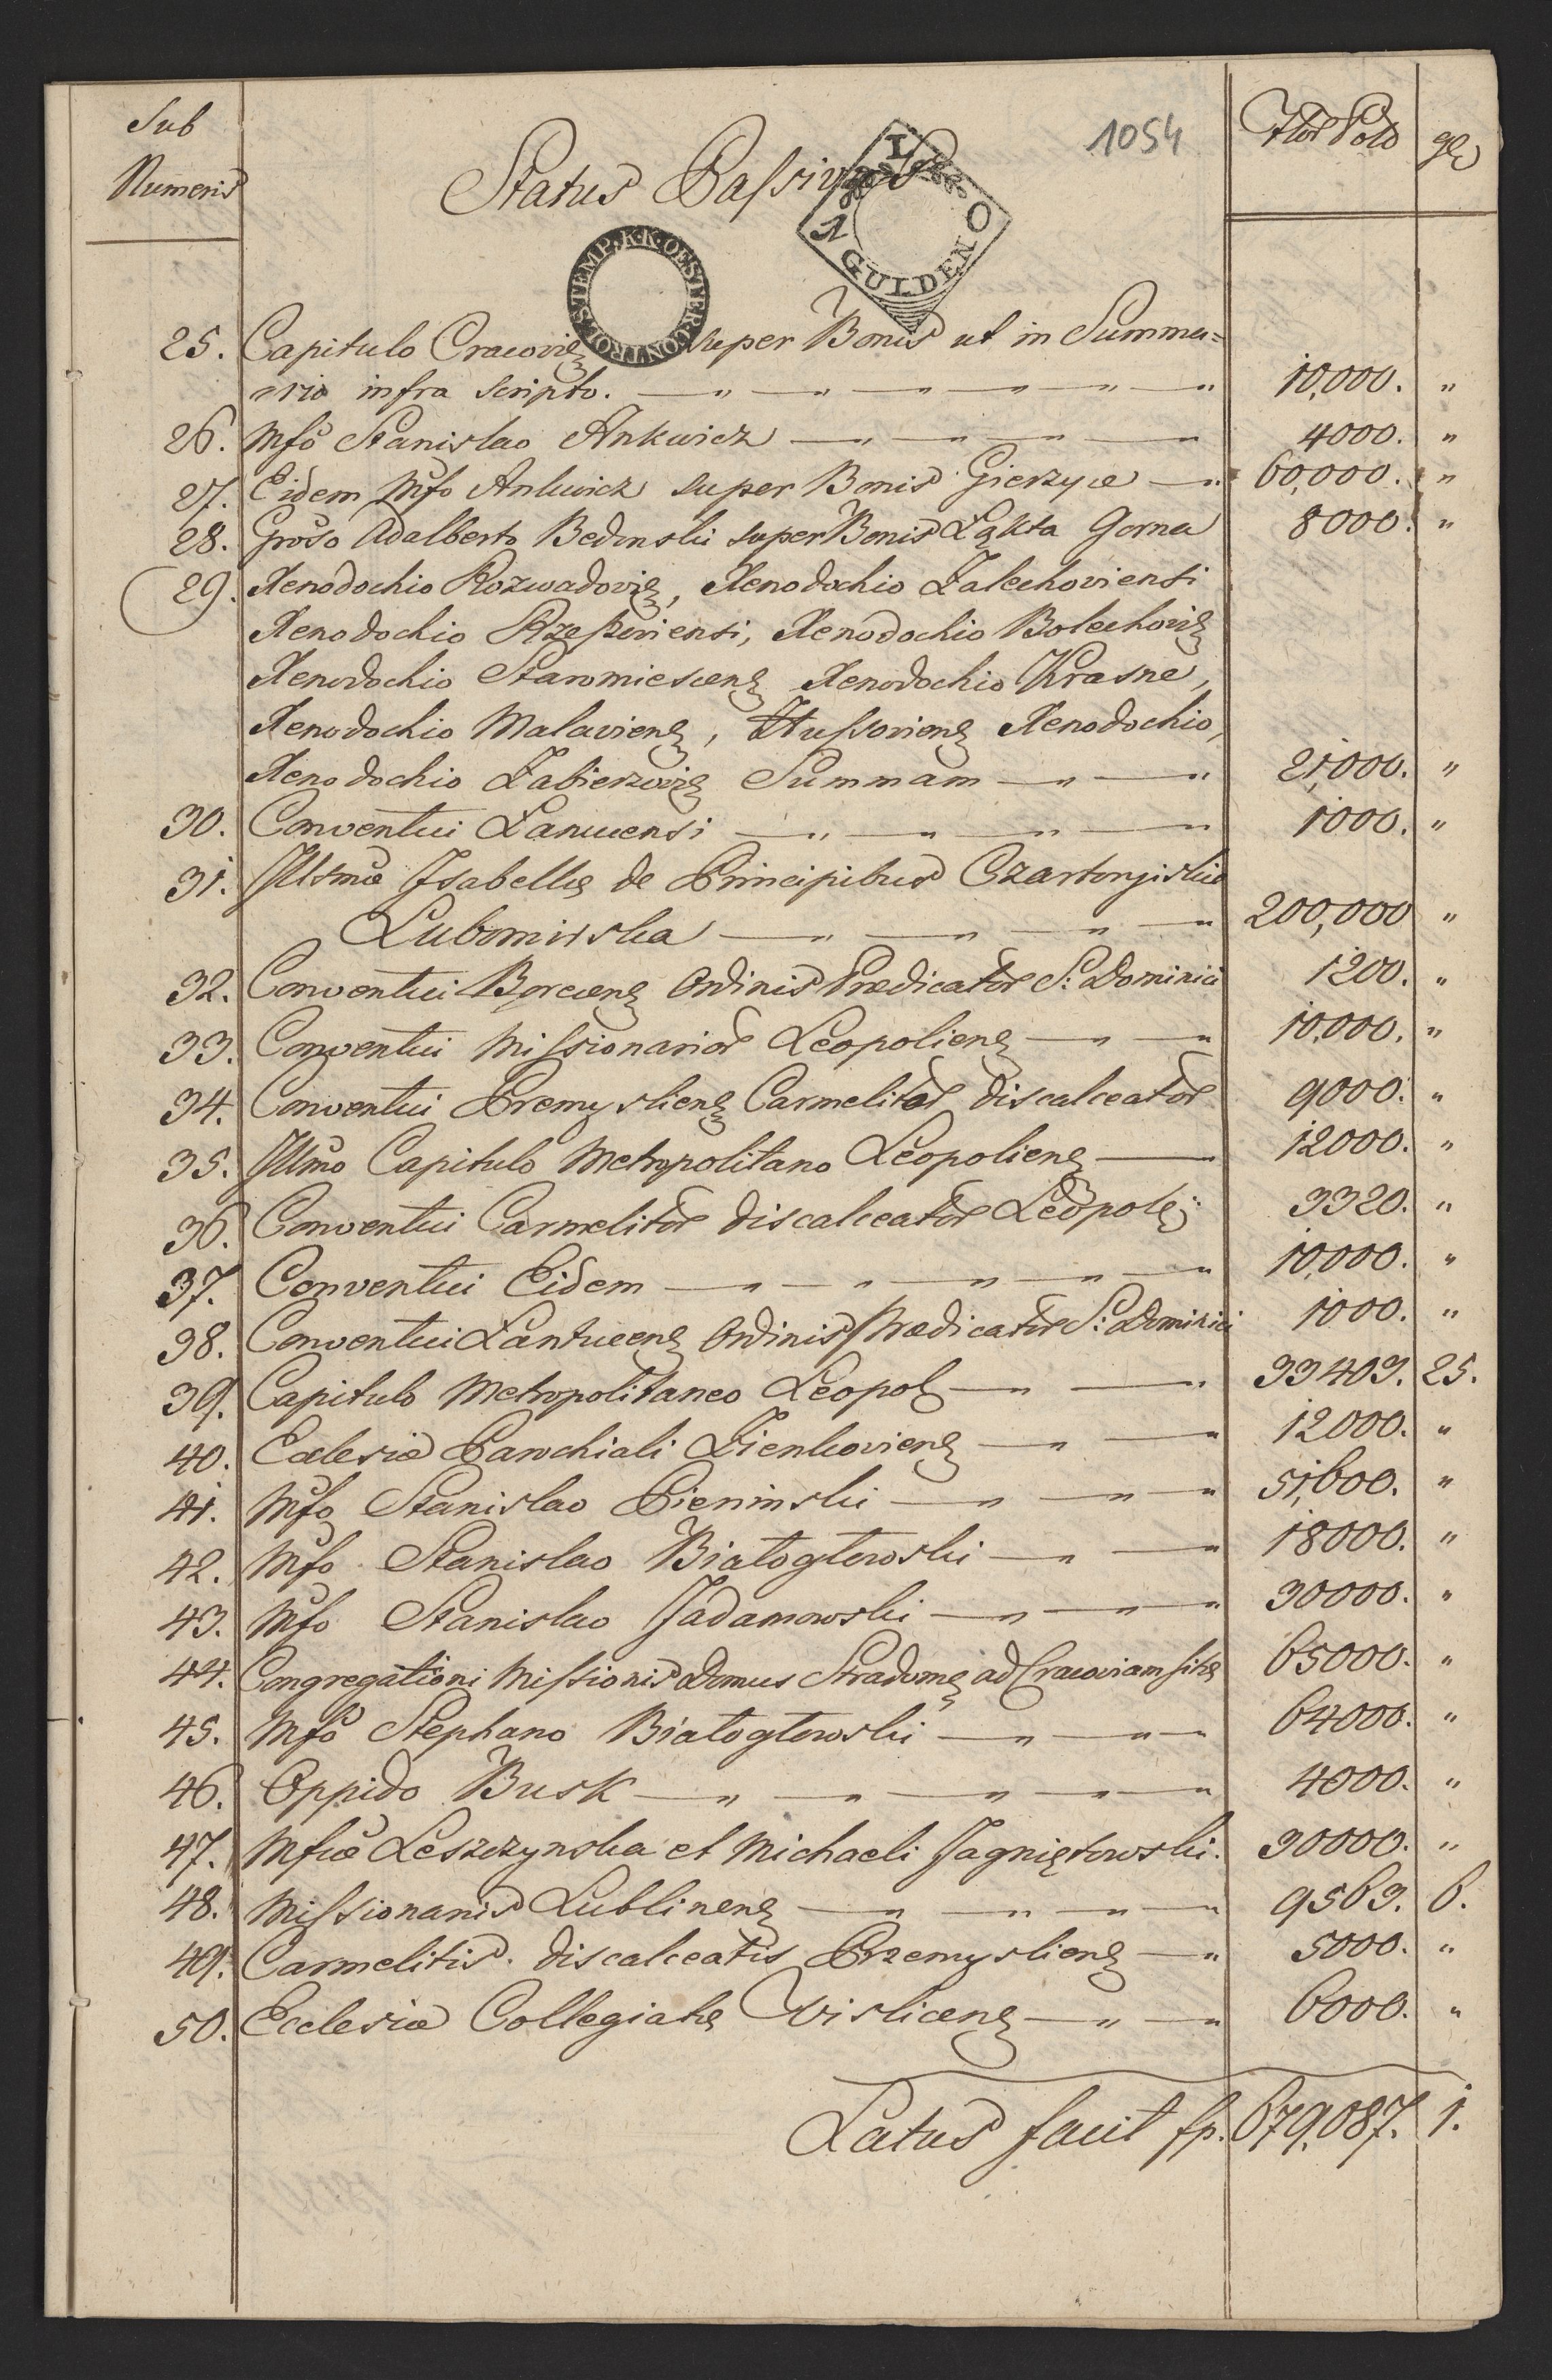 Sub
Numeris
Status Passivus
1054
Flor Polo
gr
I
1 GULDEN
CONTROL STEMP. K. K. OESTER
25. Capitulo Cracovien super Bonis ut in Summa=
ario infra scripto. 10,000. "
26. Mfco Stanislao Ankwicz 4000. "
27. Eidem Mfco Ankwicz super Bonis Gierzyce 60,000. "
28. Groso Adalberto Bedonski super Bonis Łąkta Gorna 8000. "
29. Xenodochio Rozwadovien, Xenodochio Zalechoviensi
Xenodochio Rzeszoviensi, Xenodochio Bolechovien
Xenodochio Staromiescen Xenodochio Krasne,
Xenodochio Malavien, Hussovien Xenodochio,
Xenodochio Zabierzovien Summam 21,000. "
30. Conventui Lancucensi 1000. "
31. Illsmæ Isabellæ de Principibus Czartoryiskie
Lubomirska 200,000 "
32. Conventui Borcen Ordinis Prædicator S: Dominici 1200. "
33. Conventui Missionarior Leopolien 10,000. "
34. Conventui Premyslien Carmelitar discalceator 9000. "
35. Illmo Capitulo Metropolitano Leopolien 12000. "
36. Conventui Carmelitar discalceator Leopol: 3320. "
37. Conventui Eidem 10,000. "
38. Conventui Lantucen Ordinis Prædicator S: Dominici 1000. "
39. Capitulo Metropolitaneo Leopol 33403. 25.
40. Eclesiæ Parochiali Zienkovien 12000. "
41. Mfco Stanislao Pieninski 51,600. "
42. Mfco Stanislao Białogłowski 18000. "
43. Mfco Stanislao Jadamowski 30000. "
44. Congregationi Missionis Domus Stradomæ ad Cracoviam sitæ 65000. "
45. Mfco Stephano Białogłowski 64000. "
46. Oppido Busk 4000. "
47. Mfcæ Leszczynska et Michaeli Jagniętowski. 30000. "
48. Missionaris Lublinen 9563. 6.
49. Carmelitis discalceatis Przemyslien 5000. "
50. Ecclesiæ Collegiatæ Vislicen 6000. "
Latus facit fp. 679,087. 1.